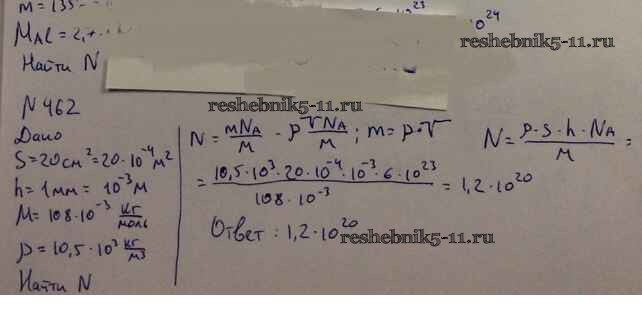 m = 135
10²⁴
reshebnik5-11.ru
Найти N
reshebnik5-11.ru
N 462
Дано
S=20см²=20·10⁻⁴м²
h=1мм=10⁻³м
M=108·10⁻³ кг/моль
ρ=10,5·10³ кг/м³
Найти N
N = mNA/M - ρVNA/M ; m=ρ·V
N = ρ·s·h·NA/M =
= 10,5·10³·20·10⁻⁴·10⁻³·6·10²³/108·10⁻³ = 1,2·10²⁰
Ответ: 1,2·10²⁰
reshebnik5-11.ru